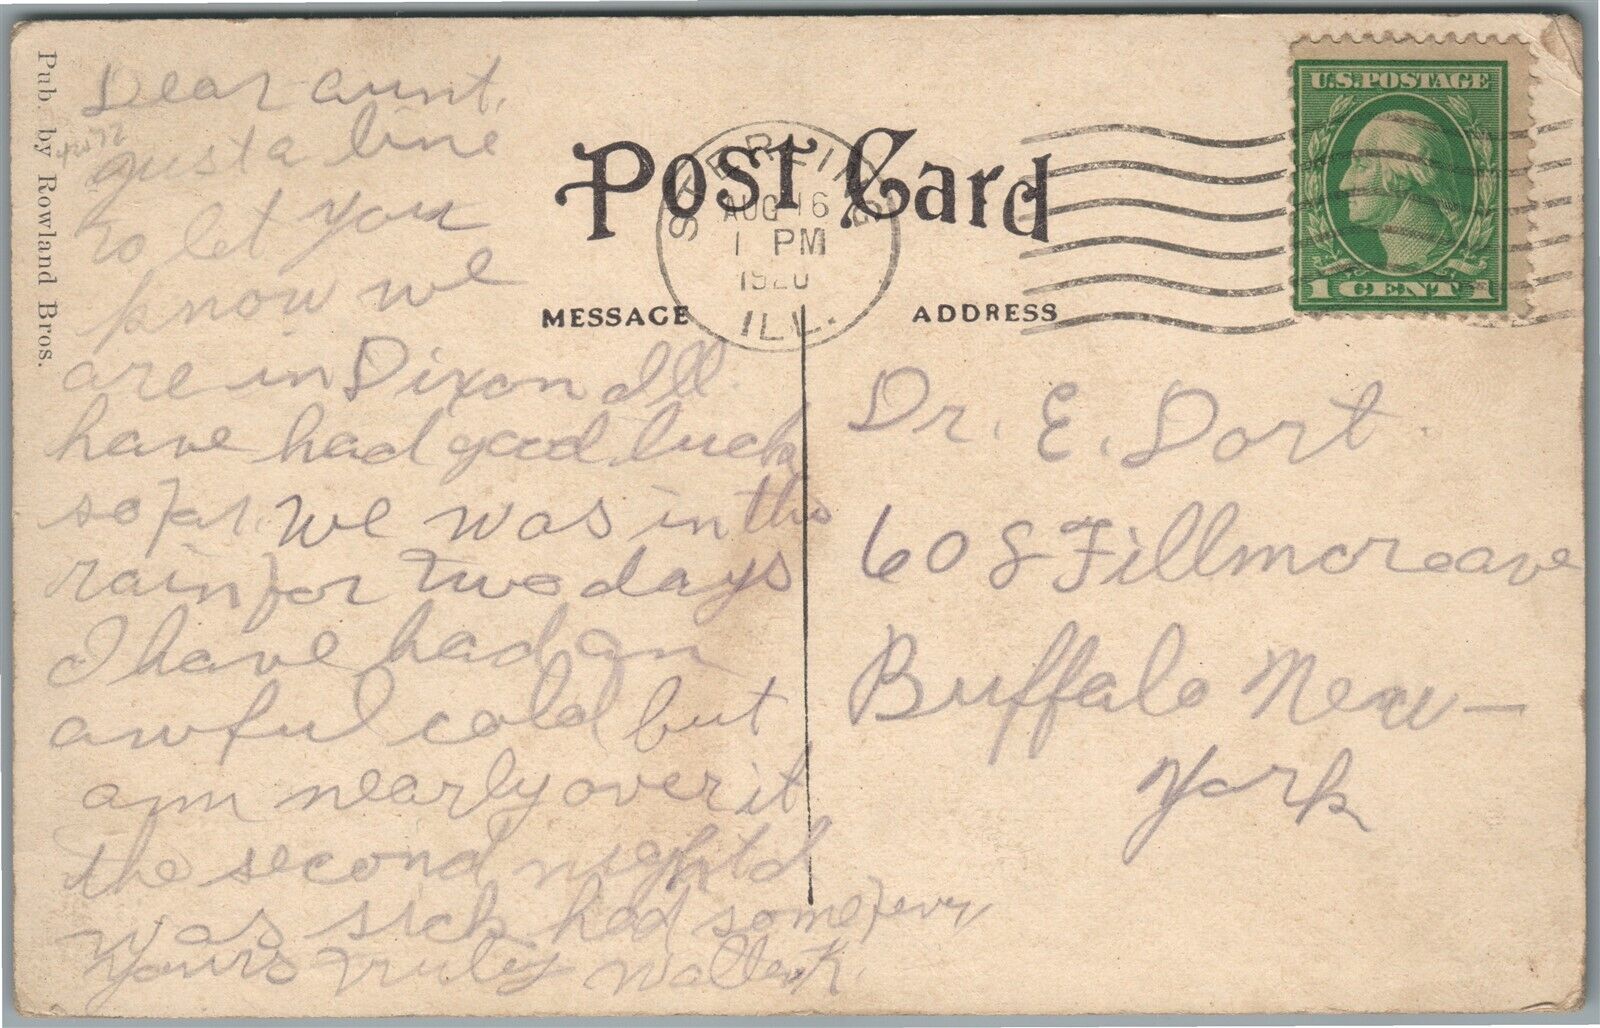 Pub. by Rowland Bros.
Dear aunt,
gust a line
to let you
know we
are in Dixon Ill.
have had good luck
so far. we was in the
rain for two days
I have had an
awful cold but
am nearly over it
the second night I
was sick had some fever
yours truley
POST CARD
MESSAGE
ADDRESS
STERLING
AUG 16
1 PM
1920
ILL.
U.S. POSTAGE
1 CENT 1
Dr. E. Dort.
608 Fillmore ave
Buffalo New—
York